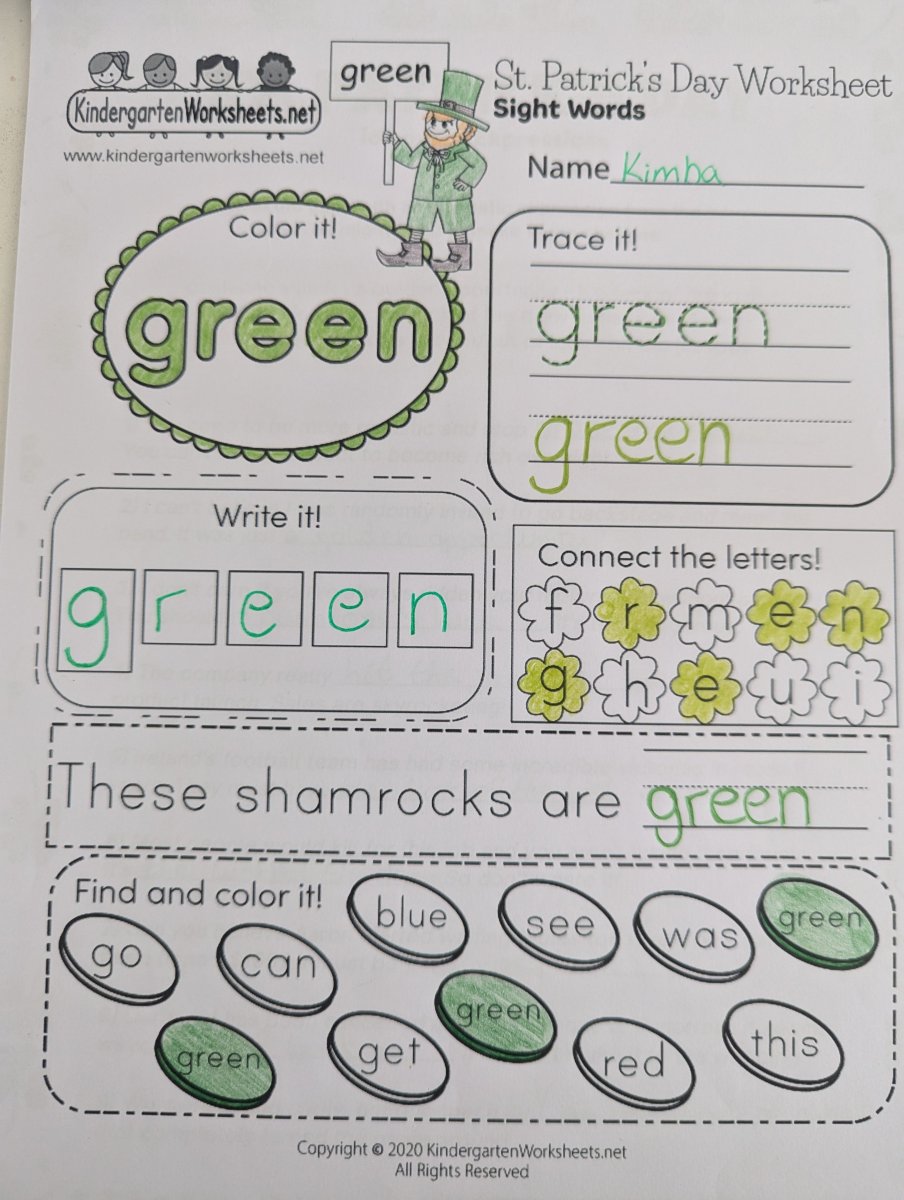 green
St. Patrick's Day Worksheet
KindergartenWorksheets.net
Sight Words
www.kindergartenworksheets.net
Name Kimba
Color it!
green
Trace it!
green
green
Write it!
g r e e n
Connect the letters!
f r m e n
g h e u i
These shamrocks are green
Find and color it!
blue see was green
go can
green
green get red this
Copyright © 2020 KindergartenWorksheets.net
All Rights Reserved